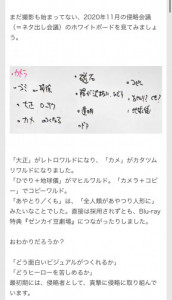 まだ撮影も始まってない、2020年11月の侵略会議
（＝ネタ出し会議）のホワイトボードを見てみましょ
う。
大正
カメ
「大正」がレトロワルドになり、「カメ」がカタツム
リワルドになりました。
「ひでり＋地球儀」がマヒルワルド。「カメラ＋コピ
ー」でコピーワルド。
「あやとり／くも」は、「全人類があやつり人形に」
みたいなことでした。直接は採用されずとも、Blu-ray
特典『ゼンカイ豆劇場』につながったりしました。
おわかりだろうか？
「どう面白いビジュアルがつくれるか」
「どうヒーローを苦しめるか」
最初期には、侵略者として、真摯に侵略に取り組んで
います。